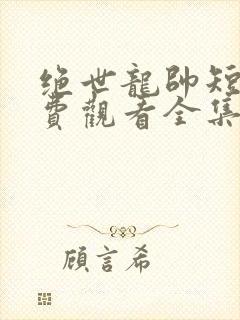 绝世龍帥短
費觀看全集
顧言希